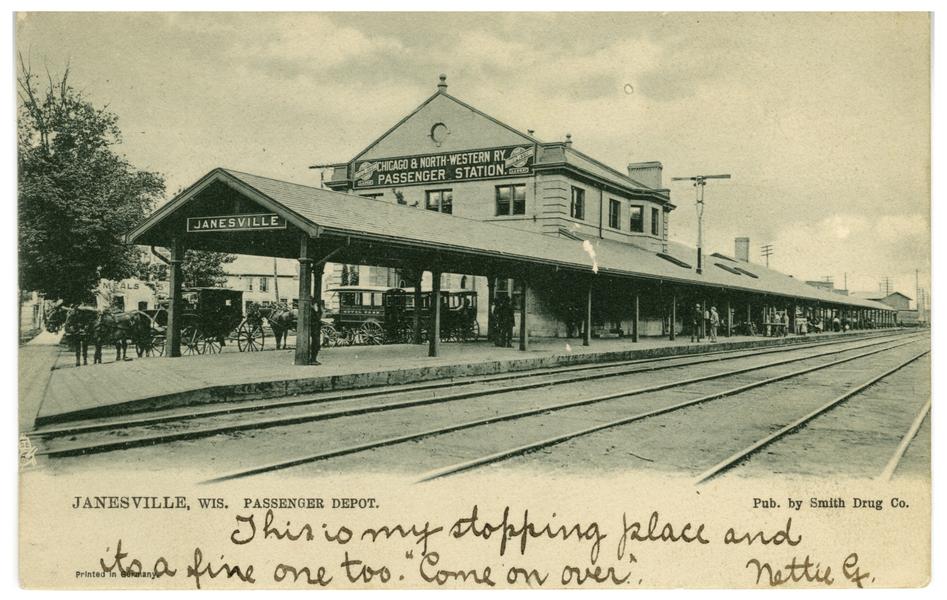 CHICAGO & NORTH-WESTERN RY
PASSENGER STATION.
JANESVILLE
MEALS
JANESVILLE, WIS. PASSENGER DEPOT.
Pub. by Smith Drug Co.
This is my stopping place and
its a fine one too. "Come on over".
Nettie G.
Printed in Germany.